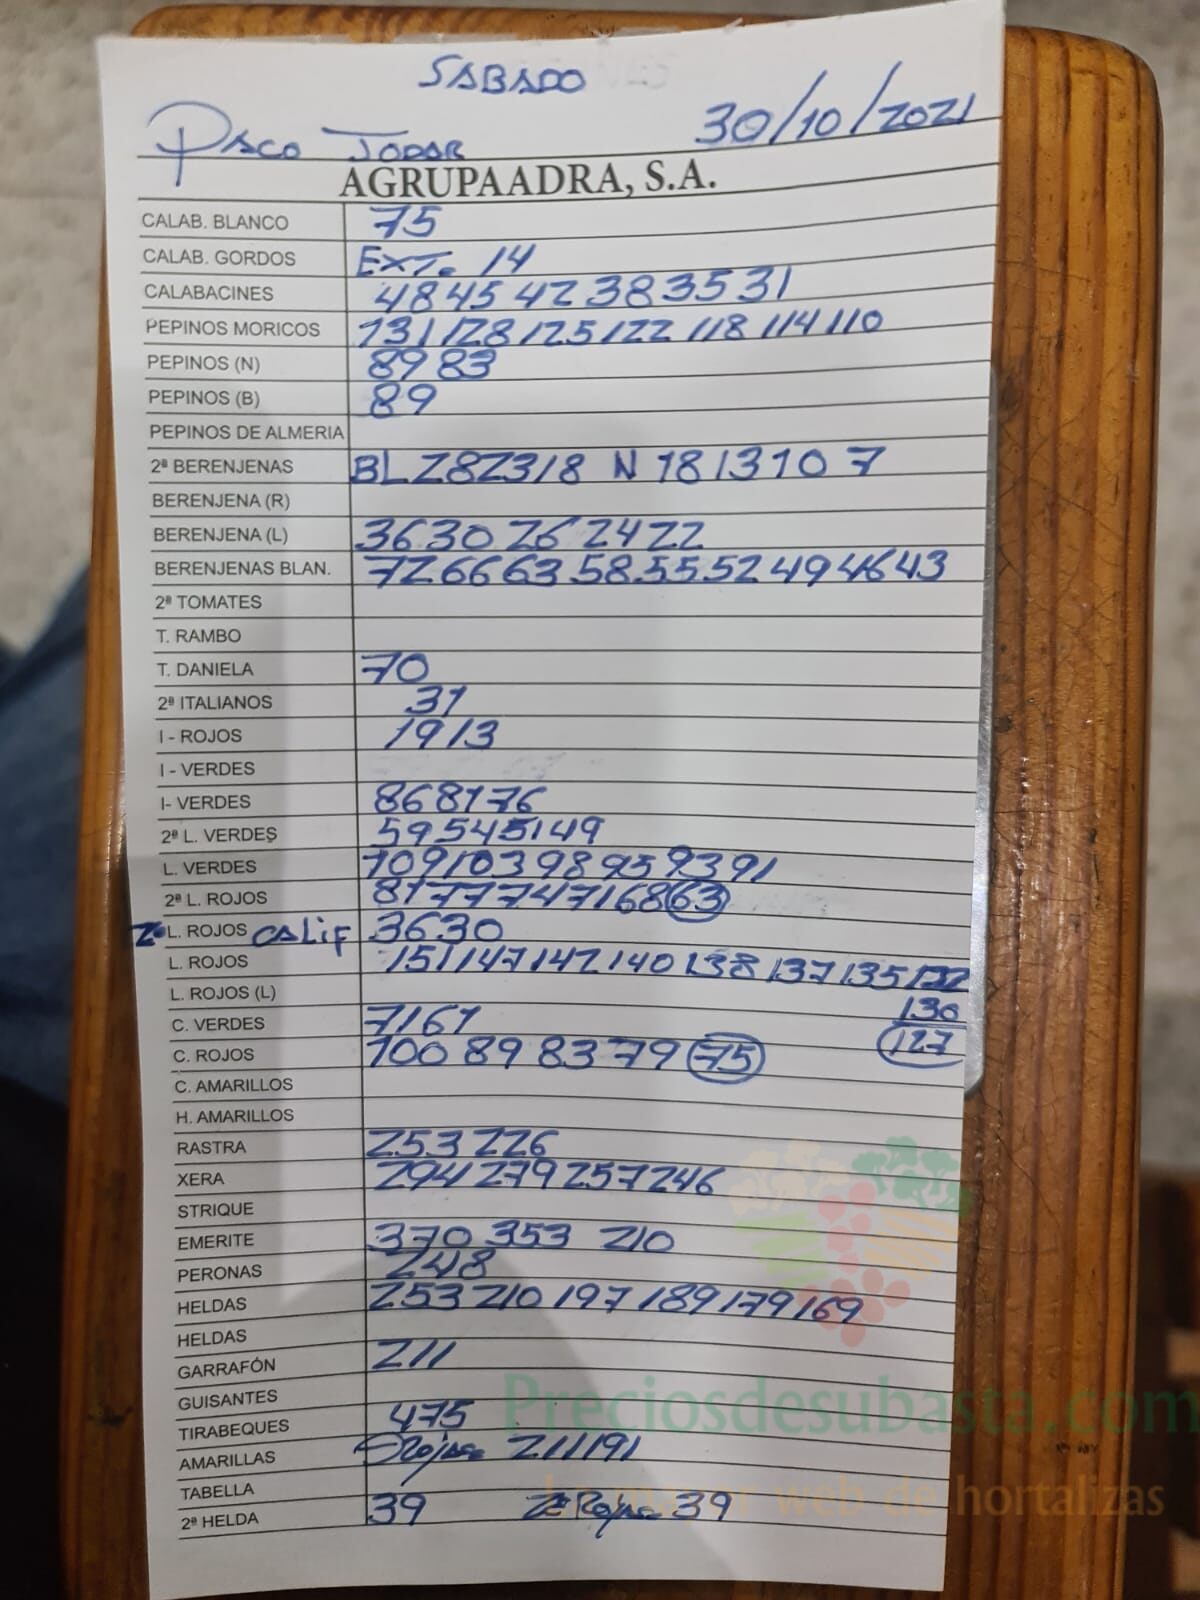 SABADO
PACO JODAR 30/10/2021
AGRUPAADRA, S.A.
CALAB. BLANCO 75
CALAB. GORDOS EXT. 14
CALABACINES 48 45 42 38 35 31
PEPINOS MORICOS 131 128 125 122 118 114 110
PEPINOS (N) 89 83
PEPINOS (B) 89
PEPINOS DE ALMERIA
2ª BERENJENAS BL 28 23 18 N 18 13 10 7
BERENJENA (R)
BERENJENA (L) 36 30 26 24 22
BERENJENAS BLAN. 72 66 63 58 55 52 49 46 43
2ª TOMATES
T. RAMBO
T. DANIELA 70
2ª ITALIANOS 31
I - ROJOS 19 13
I - VERDES
I- VERDES 86 81 76
2ª L. VERDES 59 54 51 49
L. VERDES 109 103 98 95 93 91
2ª L. ROJOS 81 77 74 71 68 63
2ª L. ROJOS CALIF 36 30
L. ROJOS 151 147 142 140 138 137 135 132
L. ROJOS (L) 130
C. VERDES 71 61 127
C. ROJOS 100 89 83 79 75
C. AMARILLOS
H. AMARILLOS
RASTRA 253 226
XERA 294 279 257 246
STRIQUE
EMERITE 370 353 210
PERONAS 248
HELDAS 253 210 197 189 179 169
HELDAS
GARRAFÓN 211
GUISANTES
TIRABEQUES 475
AMARILLAS Rojas 211 191
TABELLA
2ª HELDA 39 2ª Rojas 39
Preciosdesubasta.com
La mayor web de hortalizas